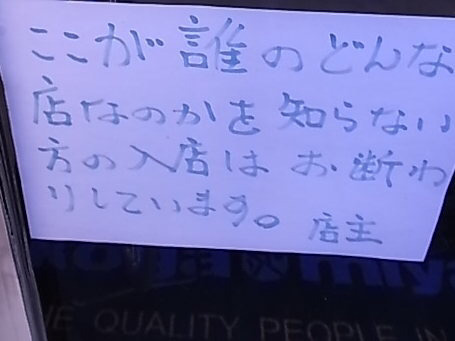 ここが誰のどんな
店なのかを知らない
方の入店はお断わ
りしています。 店主
E QUALITY PEOPLE IN